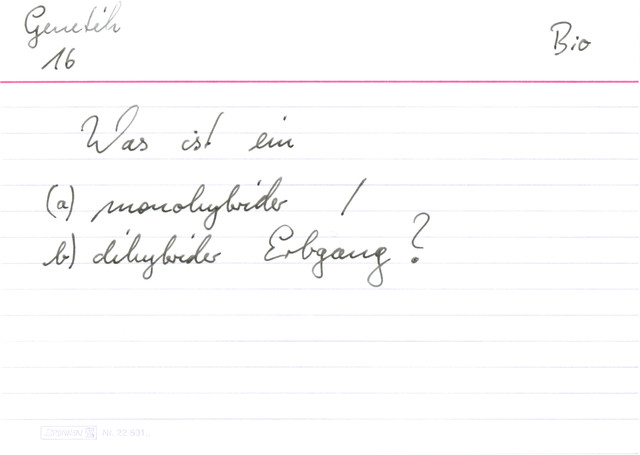 Genetik
16
Bio
Was ist ein
(a) monohybrider /
b) dihybrider Erbgang?
BRUNNEN Nr. 22 601